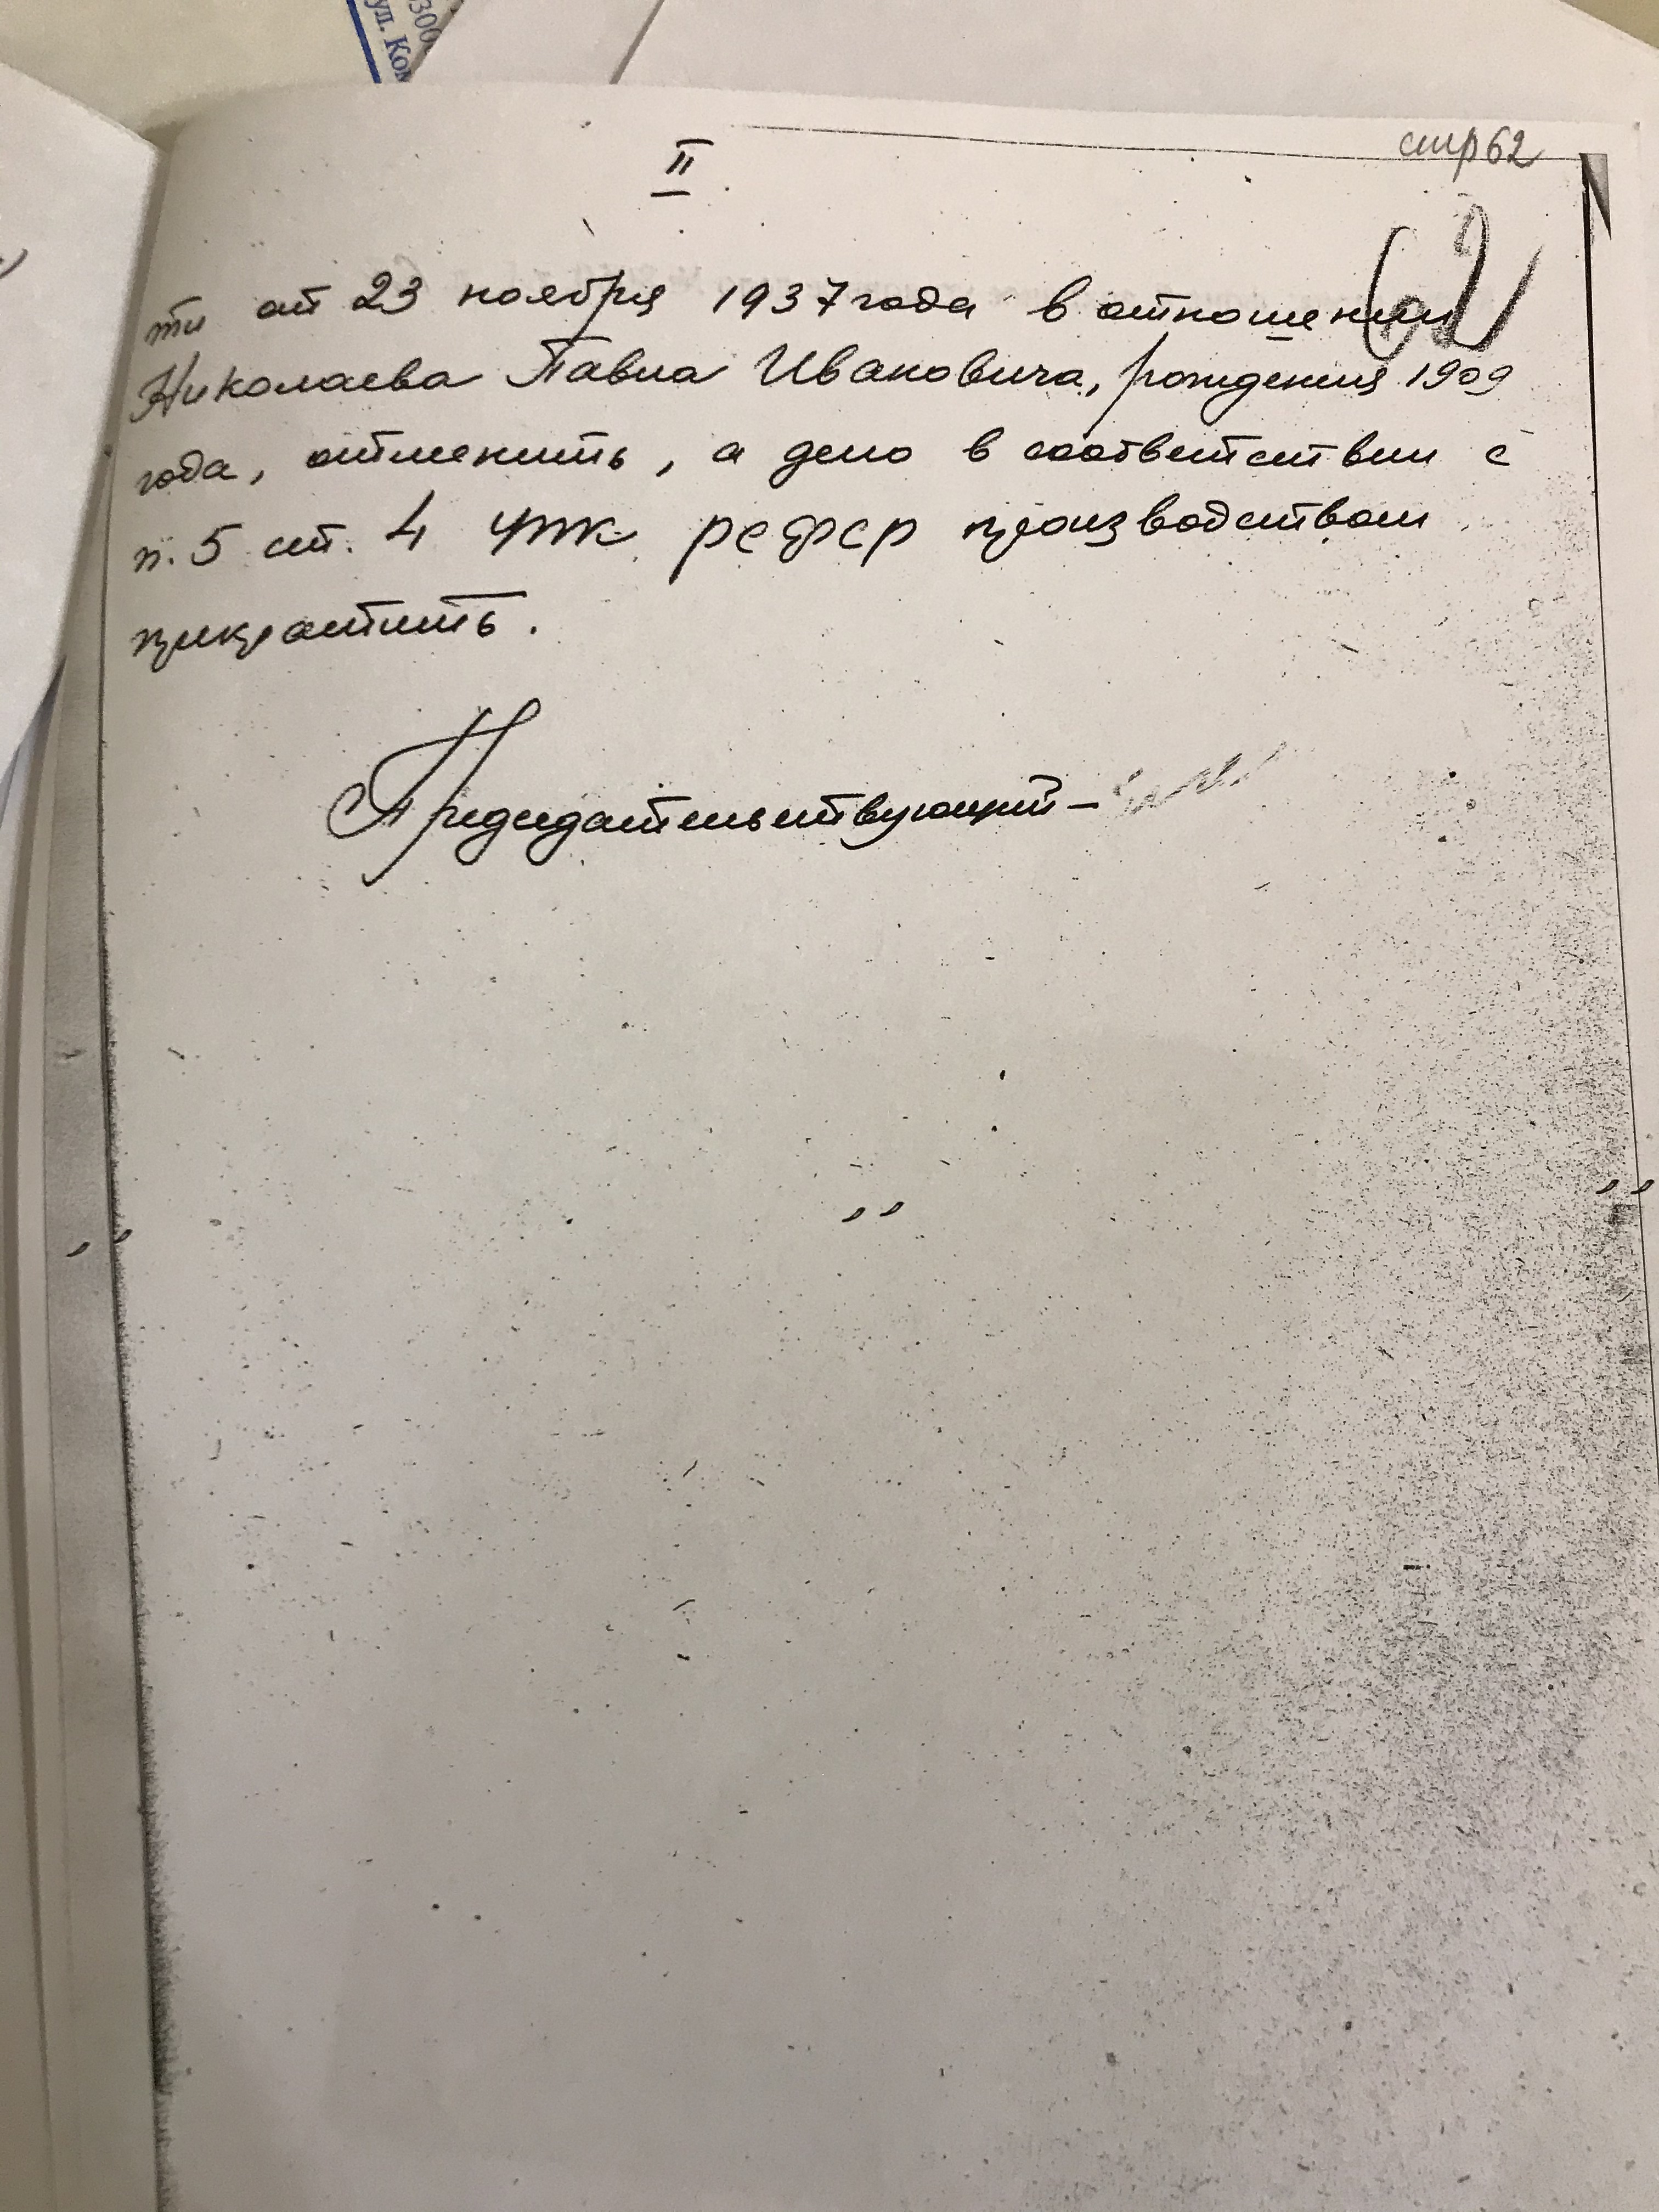 300
ул. Ком
стр 62
II
62
ти от 23 ноября 1937 года в отношении
Николаева Павла Ивановича, рождения 1909
года, отменить, а дело в соответствии с
п. 5 ст. 4 УПК РСФСР производством
прекратить.
Председательствующий –